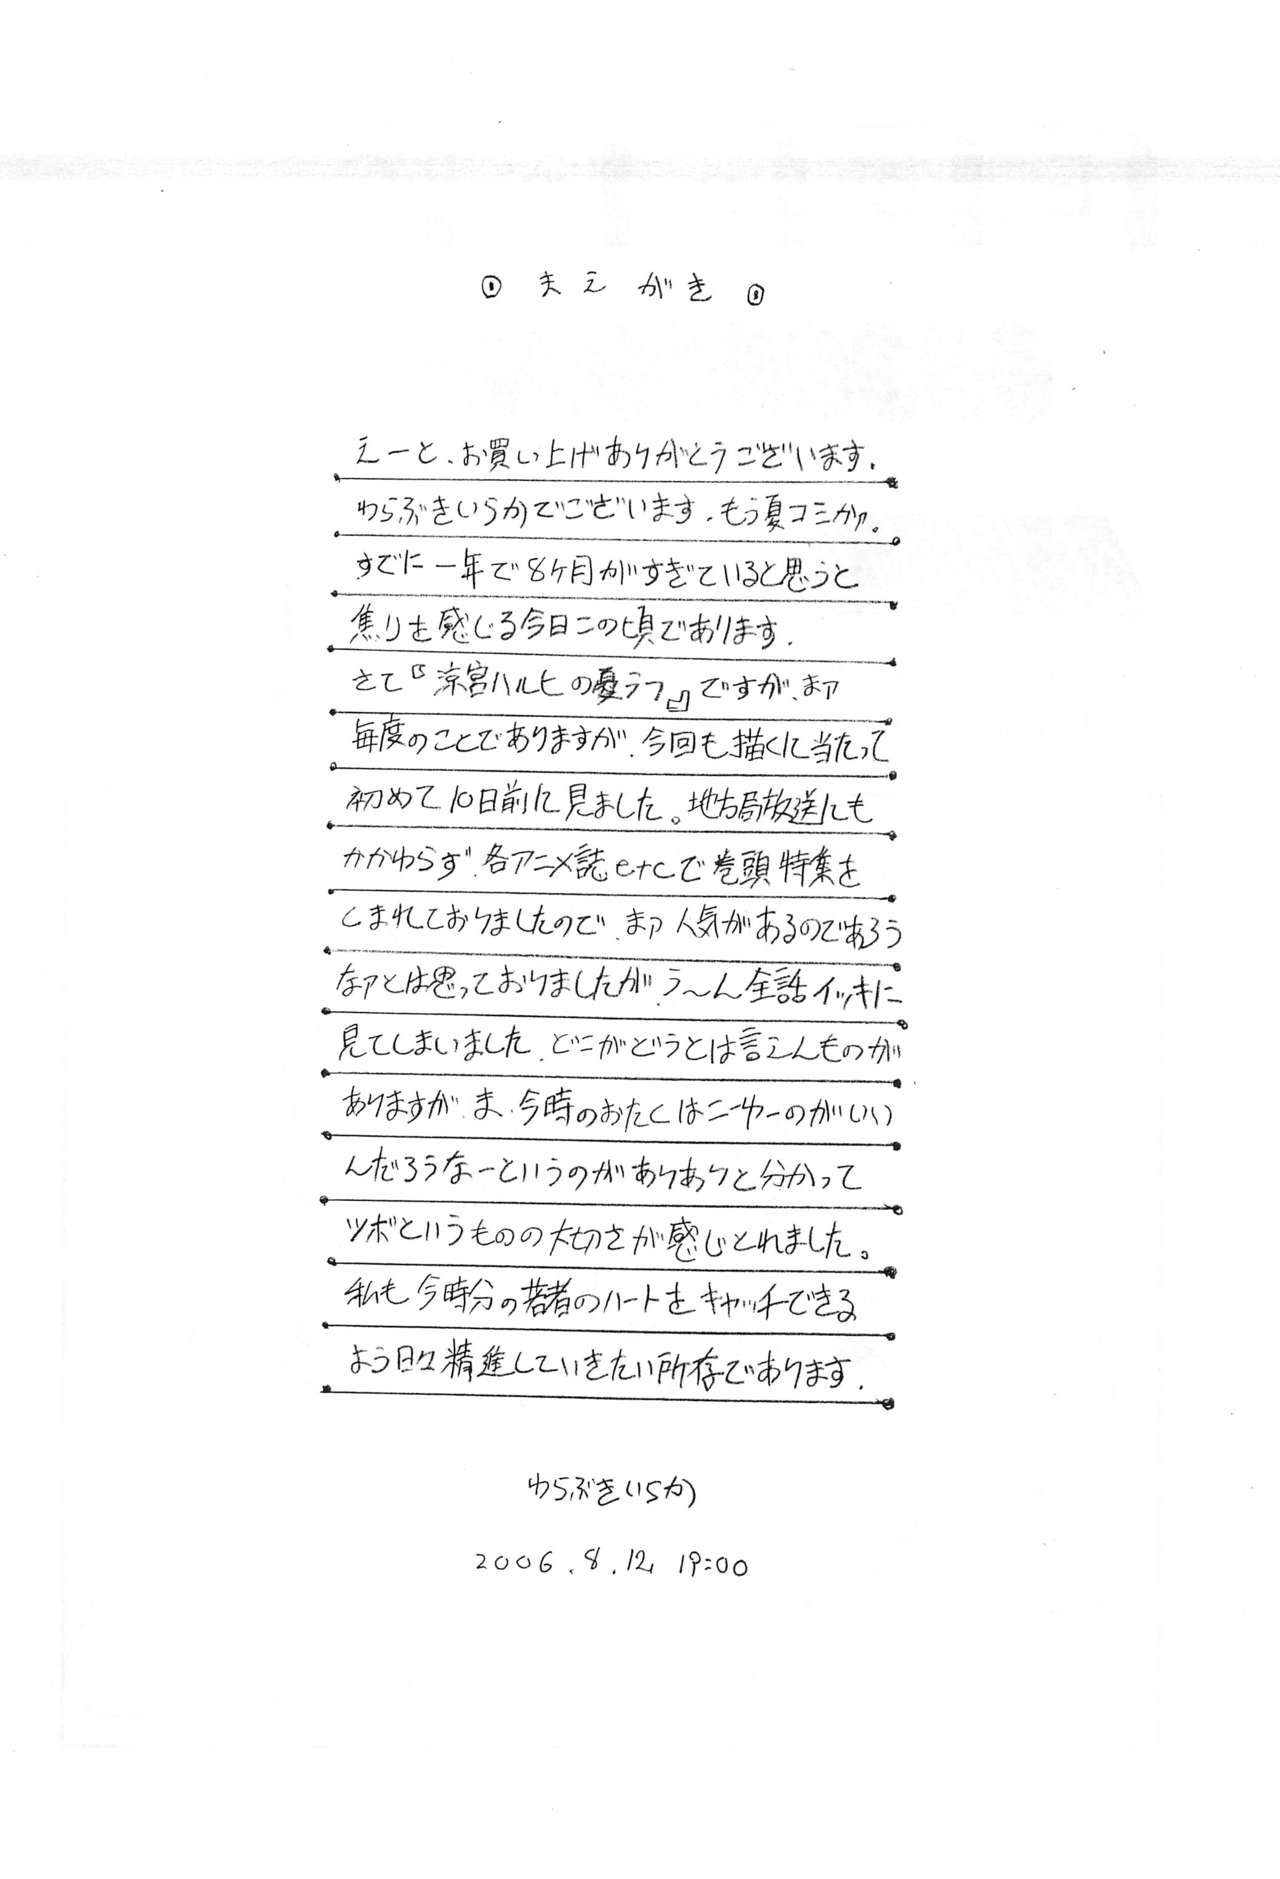 まえがき
えーと、お買い上げありがとうございます.
わらぶきいらかでございます.もう夏コミかァ。
すでに一年で8ヶ月がすぎていると思うと
焦りを感じる今日この頃であります.
さて『涼宮ハルヒの憂うつ』ですが、まァ
毎度のことでありますが、今回も描くに当たって
初めて10日前に見ました。地方局放送にも
かかわらず、各アニメ誌etcで巻頭特集を
くまれておりましたので、まァ人気があるのであろう
なァとは思っておりましたが、う〜ん全話イッキに
見てしまいました、どこがどうとは言えんものが
ありますが、ま、今時のおたくはこーゆーのがいい
んだろうなーというのがありありと分かって
ツボというものの大切さが感じとれました。
私も今時分の若者のハートをキャッチできる
よう日々精進していきたい所存であります.
わらぶきいらか
2006.8.12, 19:00